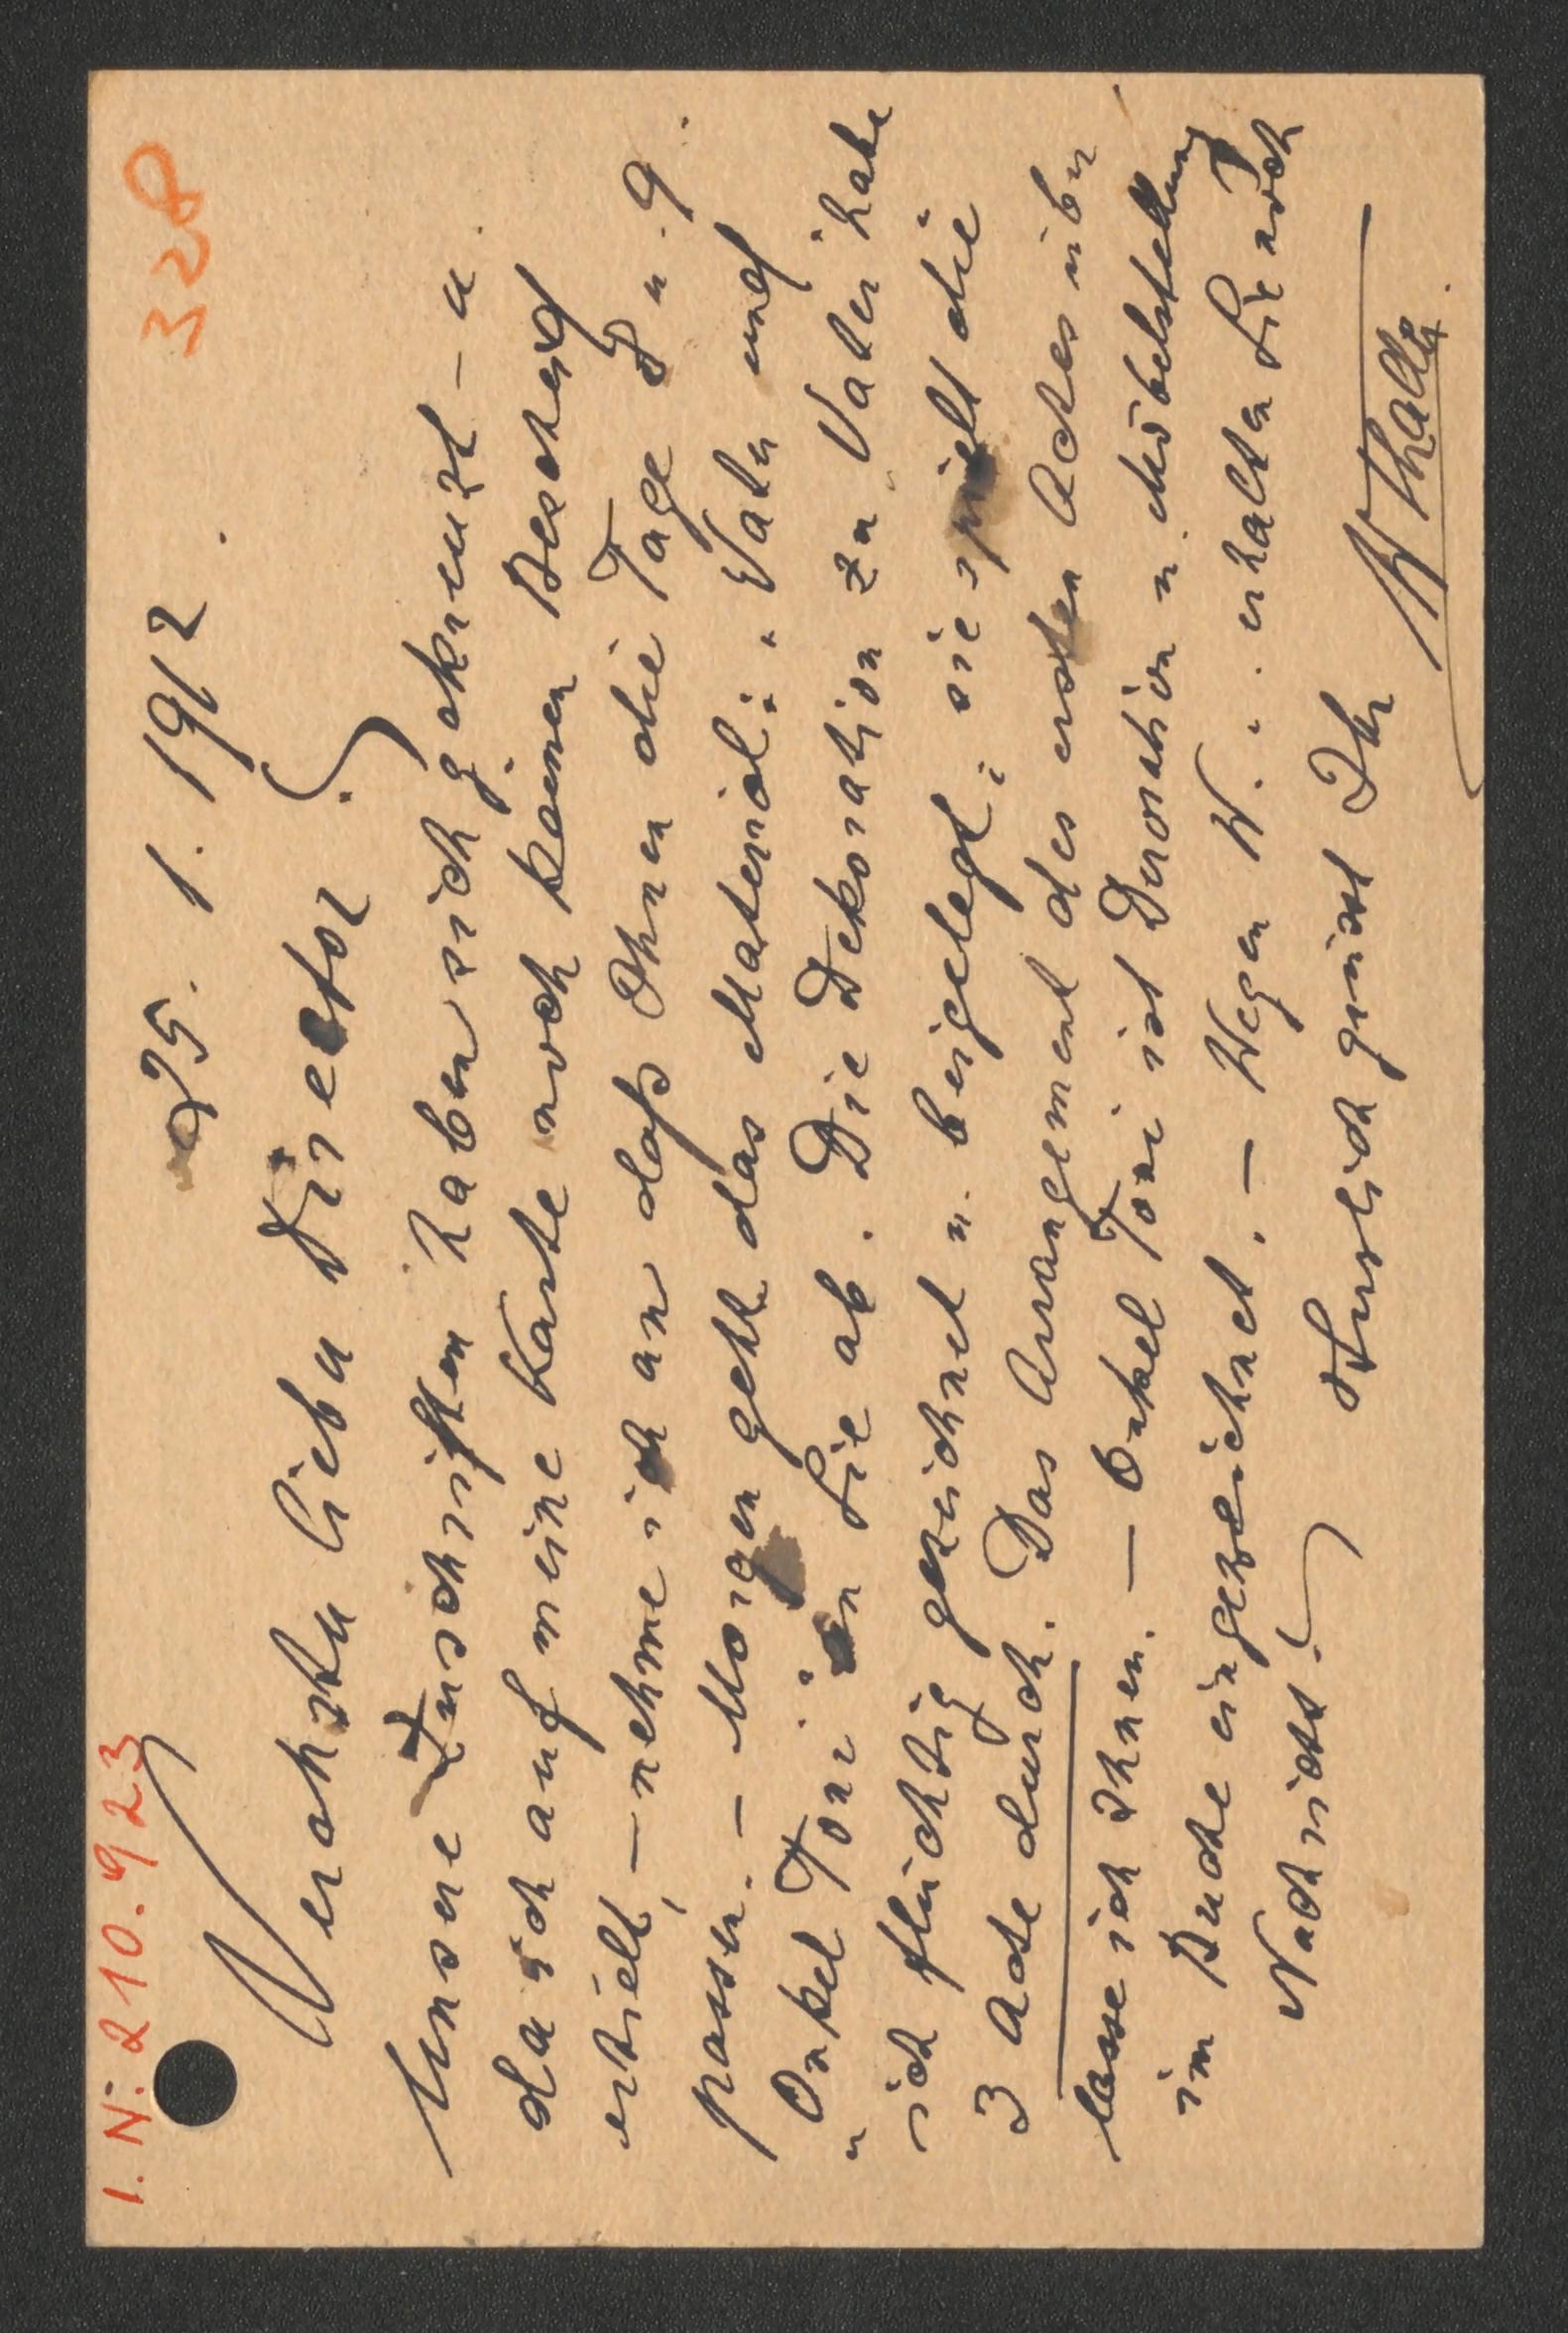 I. N: 210.923
328
25. 1. 1912.
Verehrter lieber Director!
Unsere Zuschriften haben sich gekreuzt – u.
da ich auf meine Karte noch keinen Bescheid
erhielt, – nehme ich an daß Ihnen die Tage 8 u. 9.
passen. – Morgen geht das Material: „Vater und
„Onkel Toni“ an Sie ab. Die Dekoration zu Vater habe
ich flüchtig gezeichnet u. beigelegt: sie spielt die
3 Acte durch. Das Arrangement des ersten Actes über
lasse ich Ihnen. – Onkel Toni ist Decoration u. Möbelstellung
im Buche eingezeichnet. – Wegen W. . erhalten Sie noch
Nachricht!
Herzlich grüsst Ihr
W Thaller.